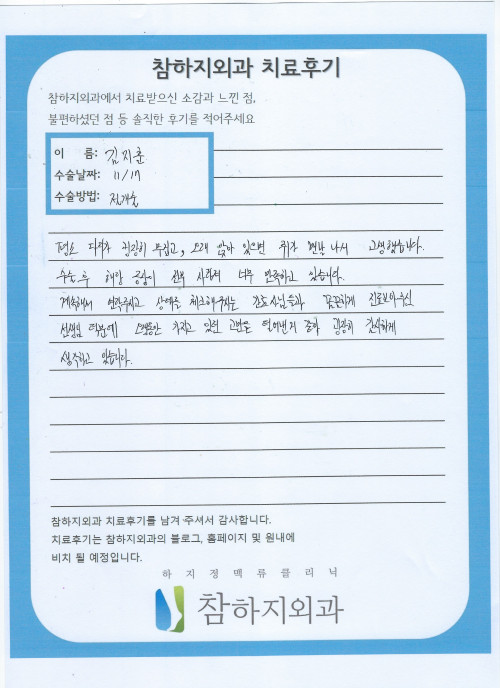 참하지외과 치료후기
참하지외과에서 치료받으신 소감과 느낀 점,
불편하셨던 점 등 솔직한 후기를 적어주세요
이 름: 김지훈
수술날짜: 11/17
수술방법: 정개술
평소 다리가 굉장히 무겁고, 오래 앉아 있으면 쥐가 맨날 나서 고생했습니다.
수술 후 해당 증상이 전부 사라져 너무 만족하고 있습니다.
계속해서 연락주시고 상태를 체크해주시는 간호사님들과 꼼꼼하게 진료보아주신
선생님 덕분에 오랫동안 가지고 있던 고민을 덜어낸거 같아 굉장히 감사하게
생각하고 있습니다.
참하지외과 치료후기를 남겨 주셔서 감사합니다.
치료후기는 참하지외과의 블로그, 홈페이지 및 원내에
비치 될 예정입니다.
하지정맥류클리닉
참하지외과